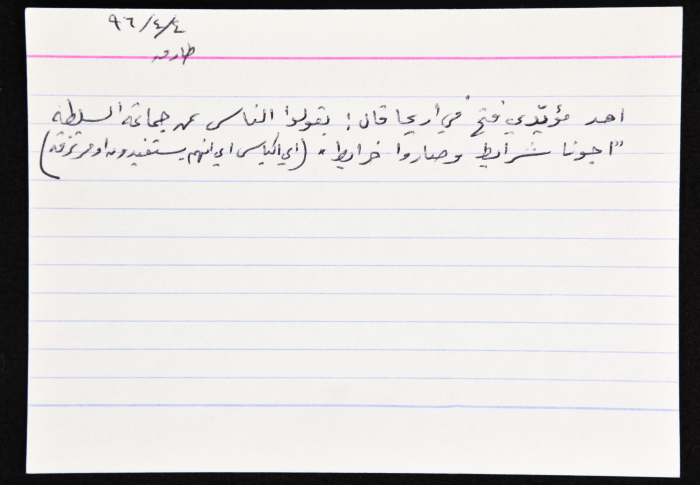 ٩٦/٤/٤
طارق
احد مؤيّدي "فتح" في اريحا قال: بقولوا الناس عن جماعة السلطة
"اجونا شرايط وصاروا خرايط". (اي اكياس اي انهم يستفيدون او مرتزقة)